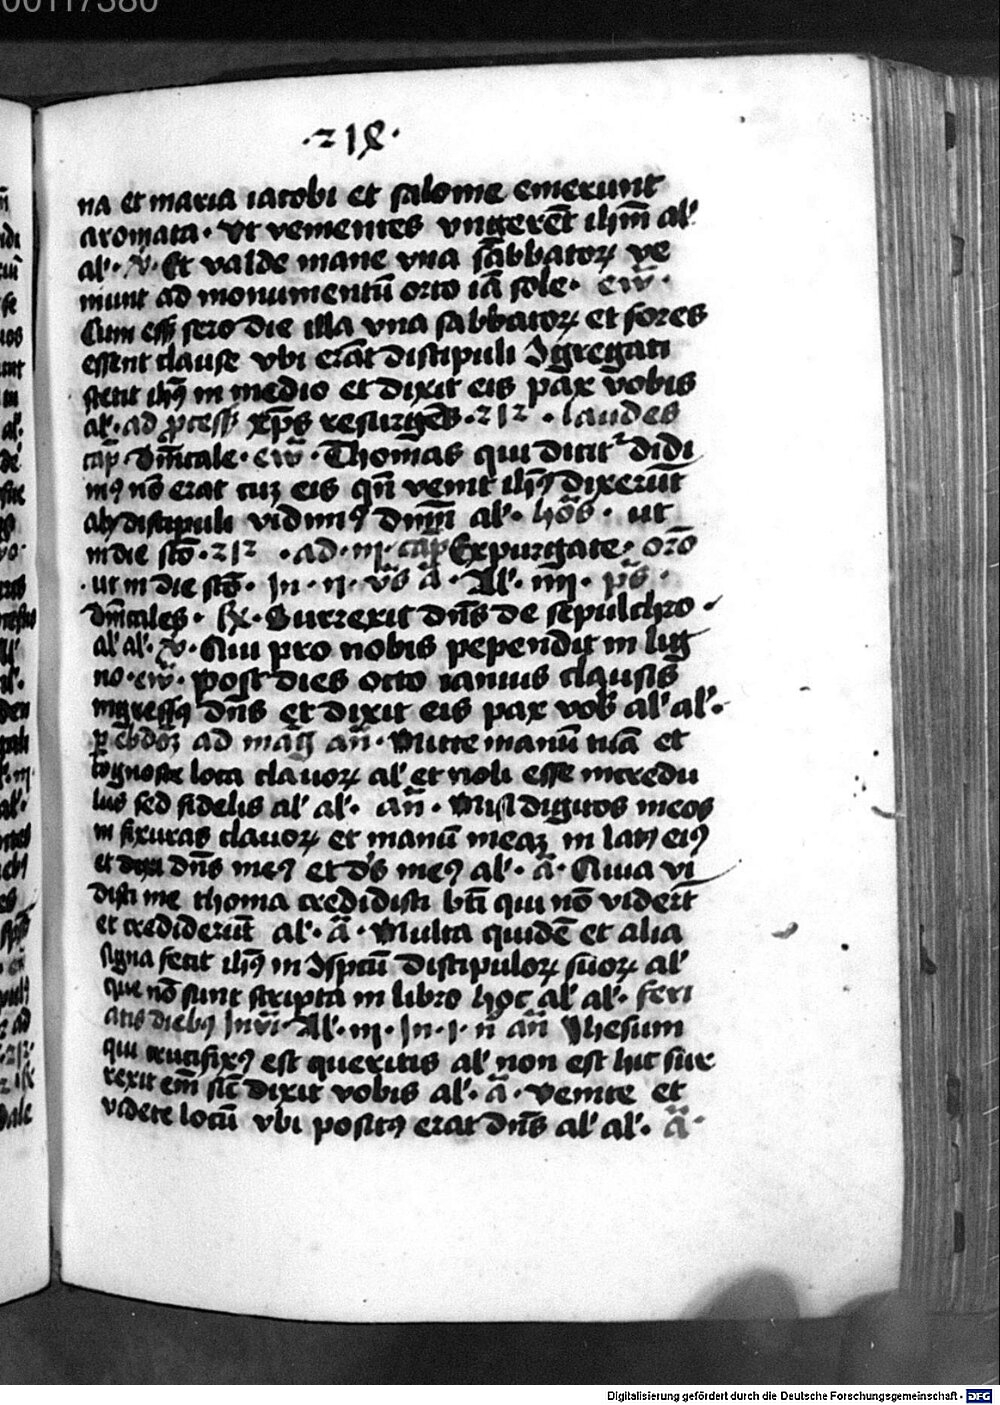 00117380
·218·
na et maria iacobi et salome emerunt
aromata · vt venientes vngerēt ihm̄ al'
al' · v̄ · Et valde mane vna sabbatoꝝ ve
niunt ad monumentū orto iā sole · ew̄ ·
Cum eſſꝫ sero die illa vna sabbatoꝝ et fores
essent clause vbi erāt discipuli ꝯgregati
stetit ihꝰ in medio et dixit eis pax vobis
al' · ad ꝓcess xp̄s resurgēs · 212 · laudes
cap̄ · dn̄icale · ew̄ · Thomas qui dicit' didi
mꝰ nō erat cuꝫ eis qn̄ venit ihꝰ dixerūt
alij discipuli vidimꝰ dn̄m al' · ho͞s · ut
in die sc͞o · 212 · ad · iii · cap̄ Expurgate · or͞o
· ut in die sc͞o · In · ii · v͞s a͞ · Al' · iiii · p͞s ·
dn̄icales · ℟ · Surrexit dn̄s de sepulchro ·
al' al' · v̄ · Qui pro nobis pependit in lig
no · ew̄ · post dies octo ianuis clausis
ingressꝰ dn̄s et dixit eis pax vob' al' al' ·
ꝑ ebdoꝫ ad maḡ an̄ · Mitte manū tuā et
cognosce loca clauoꝝ al' et noli esse incredu
lus sed fidelis al' al' · an̄ · Misi digitos meos
in fixuras clauoꝝ et manū meaꝫ in latꝰ eiꝰ
et dixi dn̄s meꝰ et d͞s meꝰ al' · a͞ · Quia vi
disti me thoma credidisti bt͞i qui nō viderūt
et crediderūt al' · a͞ · Multa quidē et alia
signa fecit ihꝰ in ꝯsp͞ctū discipuloꝝ suoꝝ al'
que nō sunt scripta in libro hoc al' al' · feri
atis diebꝰ Inui͞ · Al' · iii · In · i · n͞ an̄ Jhesum
qui crucifixꝰ est queritis al' non est hic sur
rexit em͞ sic͞ dixit vobis al' · a͞ · Venite et
videte locū vbi positꝰ erat dn̄s al' al' · a͞ ·
Digitalisierung gefördert durch die Deutsche Forschungsgemeinschaft · DFG